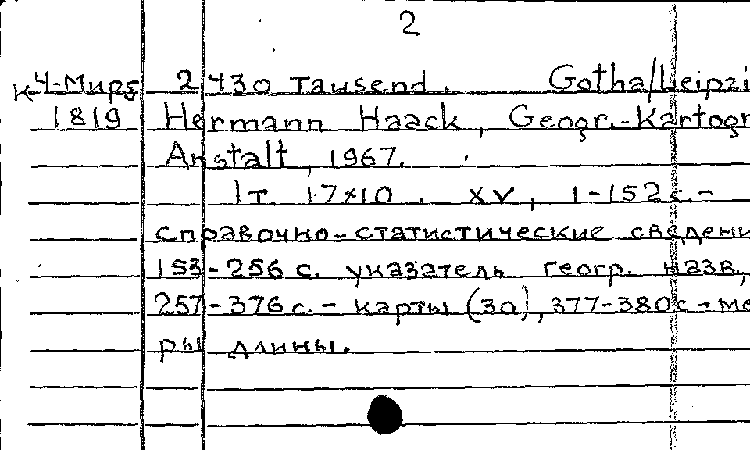 2
К4-Мира 2 430 Tausend. Gotha/Leipzi
1819 Hermann Haack, Geogr.-Kartogr
Anstalt, 1967.
1т. 17×10. XV, 1-152с.-
справочно-статистические сведени
153-256 с. указатель геогр. назв,
257-376с.- карты (30), 377-380с-ме
ры длины.